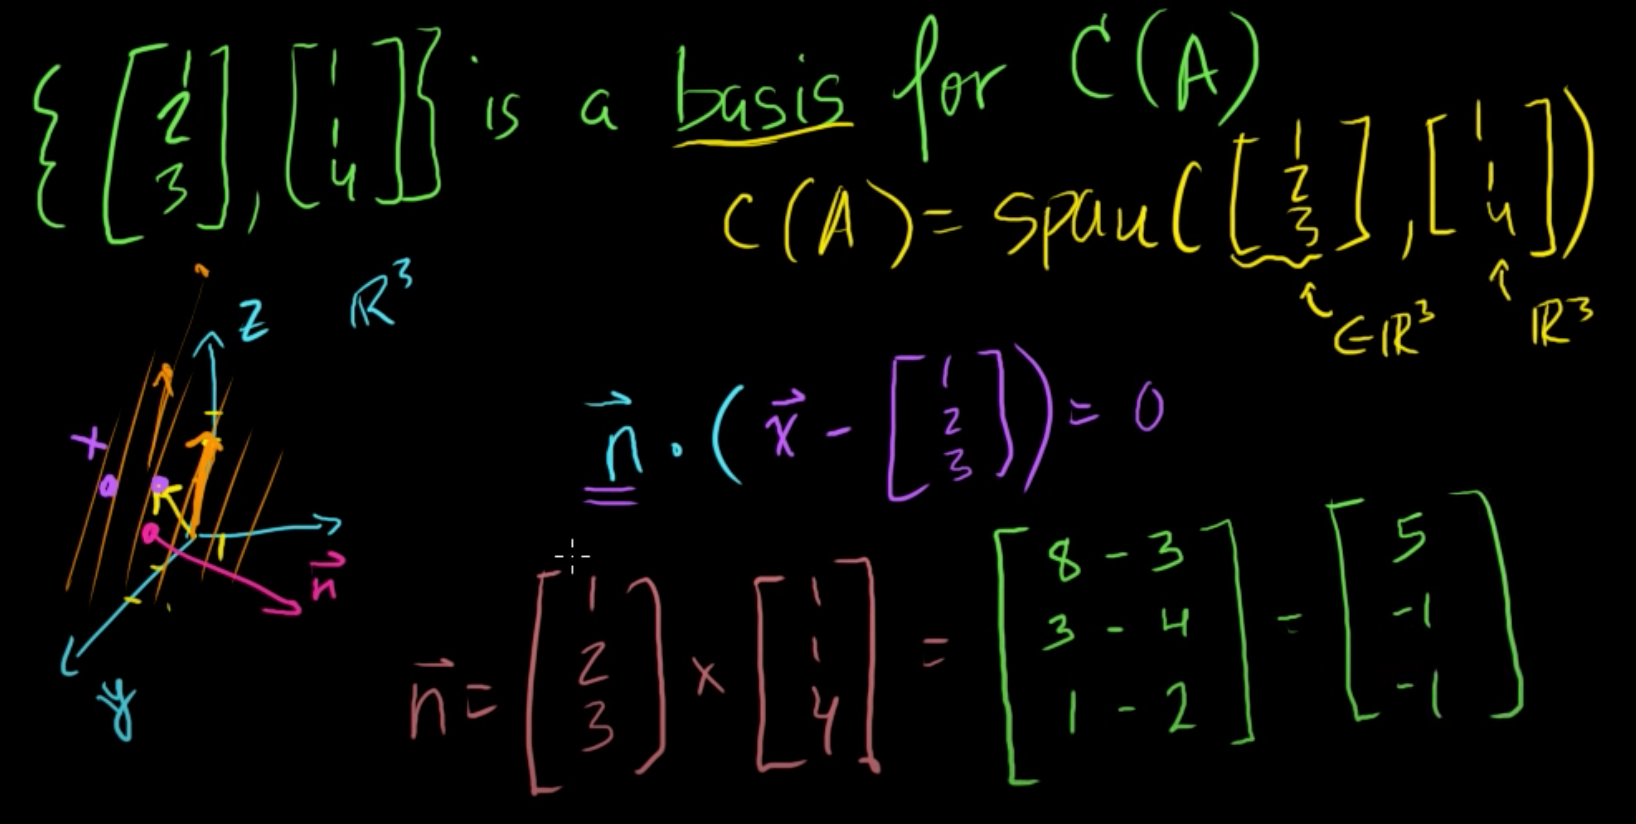 {[1 2 3], [1 1 4]} is a basis for C(A)
C(A) = span([1 2 3], [1 1 4])
∈ℝ³ ℝ³
z ℝ³
x
n⃗ · (x⃗ - [1 2 3]) = 0
n⃗
y
n⃗ = [1 2 3] × [1 1 4] = [8 - 3 3 - 4 1 - 2] = [5 -1 -1]